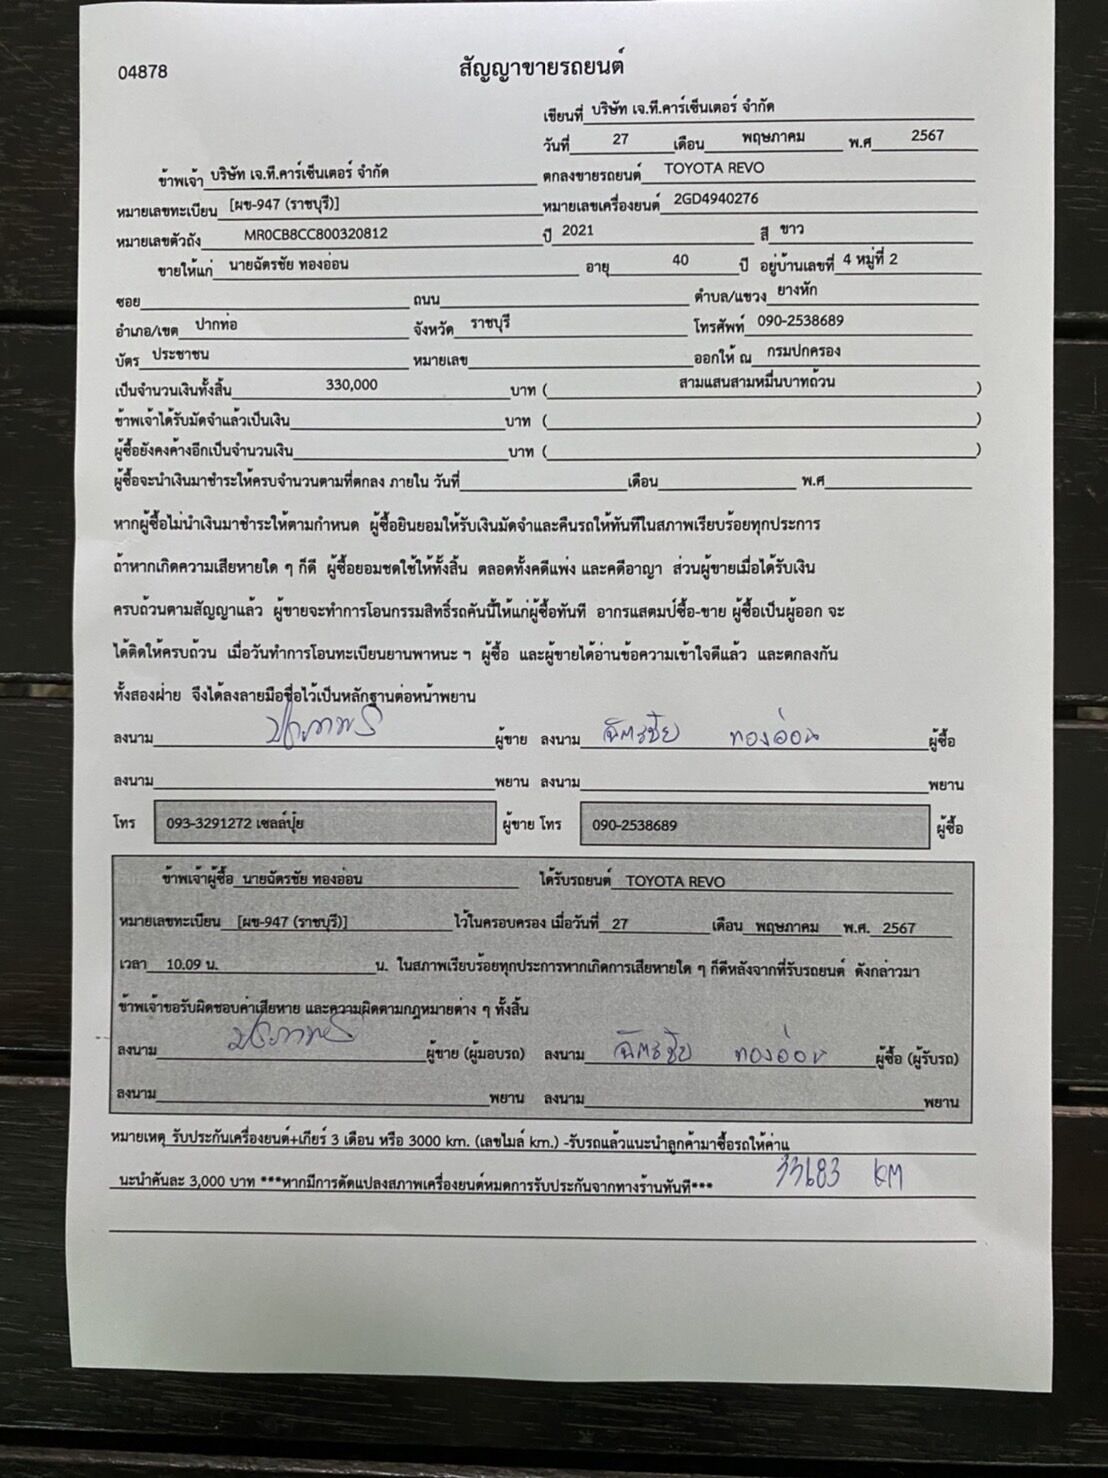 04878
สัญญาขายรถยนต์
เขียนที่ บริษัท เจ.ที.คาร์เซ็นเตอร์ จำกัด
วันที่ 27 เดือน พฤษภาคม พ.ศ 2567
ข้าพเจ้า บริษัท เจ.ที.คาร์เซ็นเตอร์ จำกัด ตกลงขายรถยนต์ TOYOTA REVO
หมายเลขทะเบียน [ผข-947 (ราชบุรี)] หมายเลขเครื่องยนต์ 2GD4940276
หมายเลขตัวถัง MR0CB8CC800320812 ปี 2021 สี ขาว
ขายให้แก่ นายฉัตรชัย ทองอ่อน อายุ 40 ปี อยู่บ้านเลขที่ 4 หมู่ที่ 2
ซอย ถนน ตำบล/แขวง ยางหัก
อำเภอ/เขต ปากท่อ จังหวัด ราชบุรี โทรศัพท์ 090-2538689
บัตร ประชาชน หมายเลข ออกให้ ณ กรมปกครอง
เป็นจำนวนเงินทั้งสิ้น 330,000 บาท ( สามแสนสามหมื่นบาทถ้วน )
ข้าพเจ้าได้รับมัดจำแล้วเป็นเงิน บาท ( )
ผู้ซื้อยังคงค้างอีกเป็นจำนวนเงิน บาท ( )
ผู้ซื้อจะนำเงินมาชำระให้ครบจำนวนตามที่ตกลง ภายใน วันที่ เดือน พ.ศ
หากผู้ซื้อไม่นำเงินมาชำระให้ตามกำหนด ผู้ซื้อยินยอมให้รับเงินมัดจำและคืนรถให้ทันทีในสภาพเรียบร้อยทุกประการ
ถ้าหากเกิดความเสียหายใด ๆ ก็ดี ผู้ซื้อยอมชดใช้ให้ทั้งสิ้น ตลอดทั้งคดีแพ่ง และคดีอาญา ส่วนผู้ขายเมื่อได้รับเงิน
ครบถ้วนตามสัญญาแล้ว ผู้ขายจะทำการโอนกรรมสิทธิ์รถคันนี้ให้แก่ผู้ซื้อทันที อากรแสตมป์ซื้อ-ขาย ผู้ซื้อเป็นผู้ออก จะ
ได้ติดให้ครบถ้วน เมื่อวันทำการโอนทะเบียนยานพาหนะ ฯ ผู้ซื้อ และผู้ขายได้อ่านข้อความเข้าใจดีแล้ว และตกลงกัน
ทั้งสองฝ่าย จึงได้ลงลายมือชื่อไว้เป็นหลักฐานต่อหน้าพยาน
ลงนาม ผู้ขาย ลงนาม ฉัตรชัย ทองอ่อน ผู้ซื้อ
ลงนาม พยาน ลงนาม พยาน
โทร 093-3291272 เซลล์ปุ๋ย ผู้ขาย โทร 090-2538689 ผู้ซื้อ
ข้าพเจ้าผู้ซื้อ นายฉัตรชัย ทองอ่อน ได้รับรถยนต์ TOYOTA REVO
หมายเลขทะเบียน [ผข-947 (ราชบุรี)] ไว้ในครอบครอง เมื่อวันที่ 27 เดือน พฤษภาคม พ.ศ. 2567
เวลา 10.09 น. น. ในสภาพเรียบร้อยทุกประการหากเกิดการเสียหายใด ๆ ก็ดีหลังจากที่รับรถยนต์ ดังกล่าวมา
ข้าพเจ้าขอรับผิดชอบค่าเสียหาย และความผิดตามกฎหมายต่าง ๆ ทั้งสิ้น
ลงนาม ผู้ขาย (ผู้มอบรถ) ลงนาม ฉัตรชัย ทองอ่อน ผู้ซื้อ (ผู้รับรถ)
ลงนาม พยาน ลงนาม พยาน
หมายเหตุ รับประกันเครื่องยนต์+เกียร์ 3 เดือน หรือ 3000 km. (เลขไมล์ km.) -รับรถแล้วแนะนำลูกค้ามาซื้อรถให้ค่าแ
นะนำคันละ 3,000 บาท ***หากมีการดัดแปลงสภาพเครื่องยนต์หมดการรับประกันจากทางร้านทันที*** 33683 KM